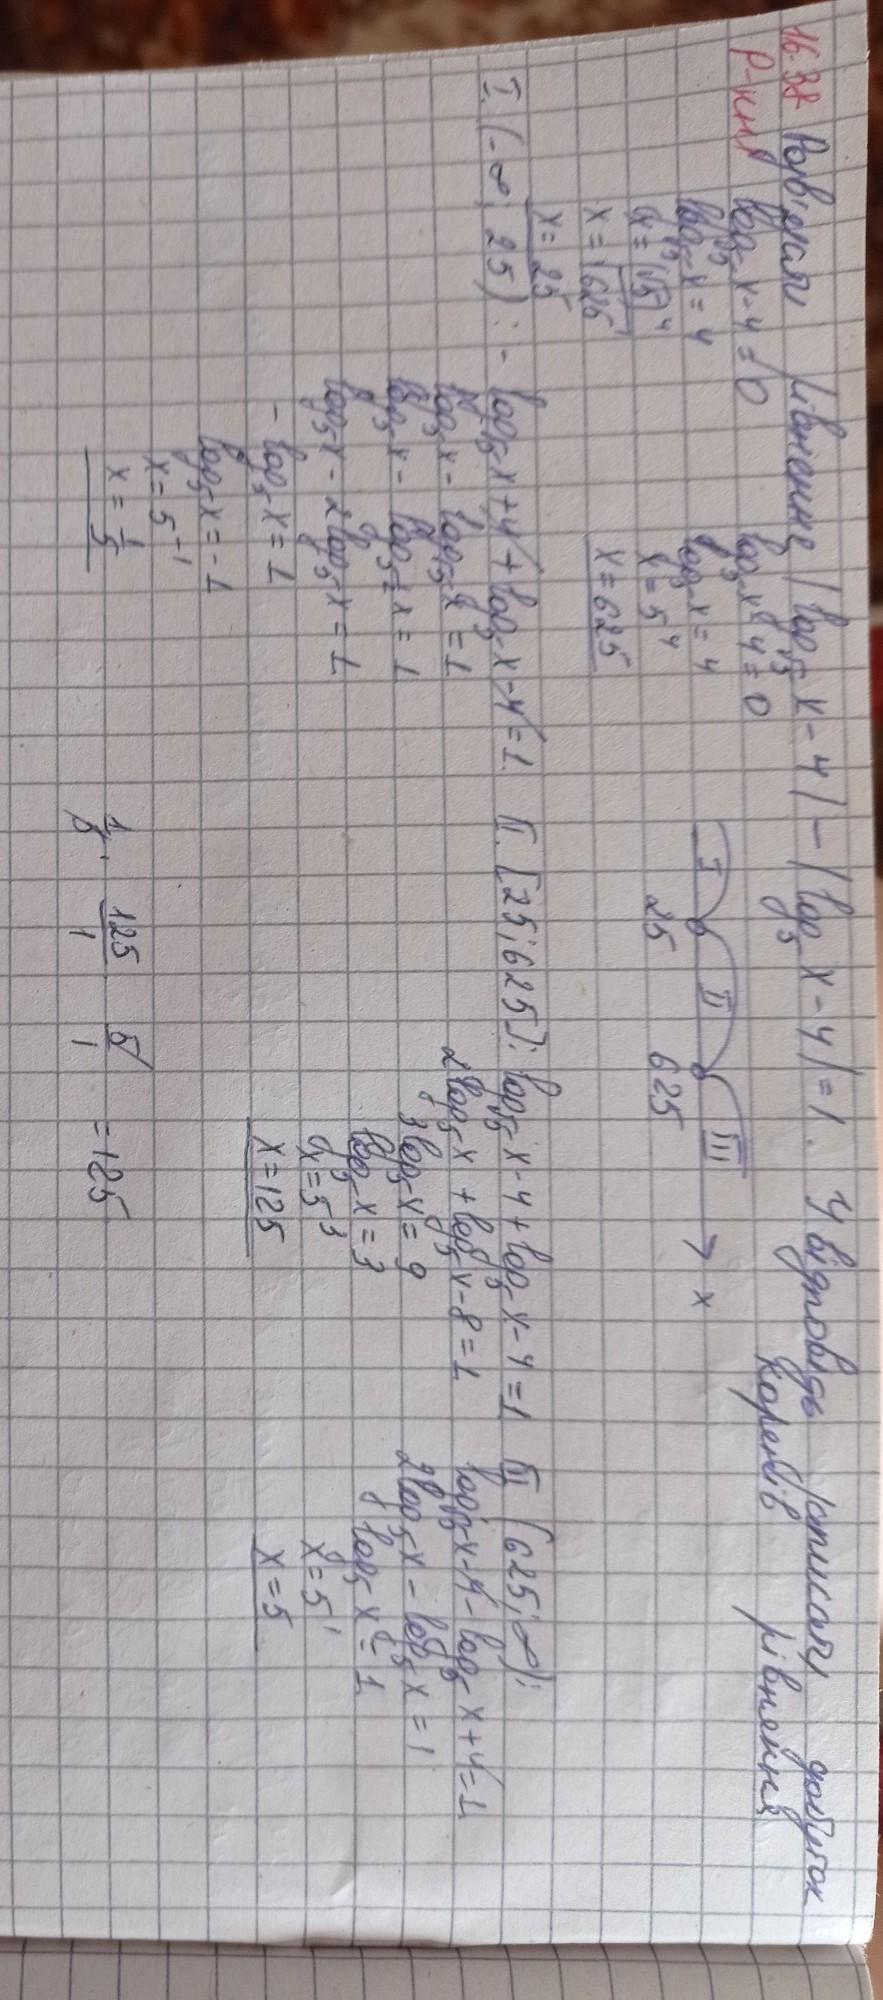 16.38 Розв'язати рівняння |log√5 x - 4| - |log5 x - 4| = 1. У відповідь записати добуток
Р-ння коренів рівняння
log√5 x - 4 = 0
log√5 x = 4
x = (√5)^4
x = √625
x = 25
log5 x - 4 = 0
log5 x = 4
x = 5^4
x = 625
I II III
25 625 x
I. (-∞; 25): - log√5 x + 4 + log5 x - 4 = 1
log5 x - log√5 x = 1
log5 x - log5^½ x = 1
log5 x - 2log5 x = 1
- log5 x = 1
log5 x = -1
x = 5^-1
x = 1/5
II. [25; 625]: log√5 x - 4 + log5 x - 4 = 1
2log5 x + log5 x - 8 = 1
3log5 x = 9
log5 x = 3
x = 5^3
x = 125
III (625; ∞):
log√5 x - 4 - log5 x + 4 = 1
2log5 x - log5 x = 1
log5 x = 1
x = 5^1
x = 5
1/5 · 125/1 5/1 = 125